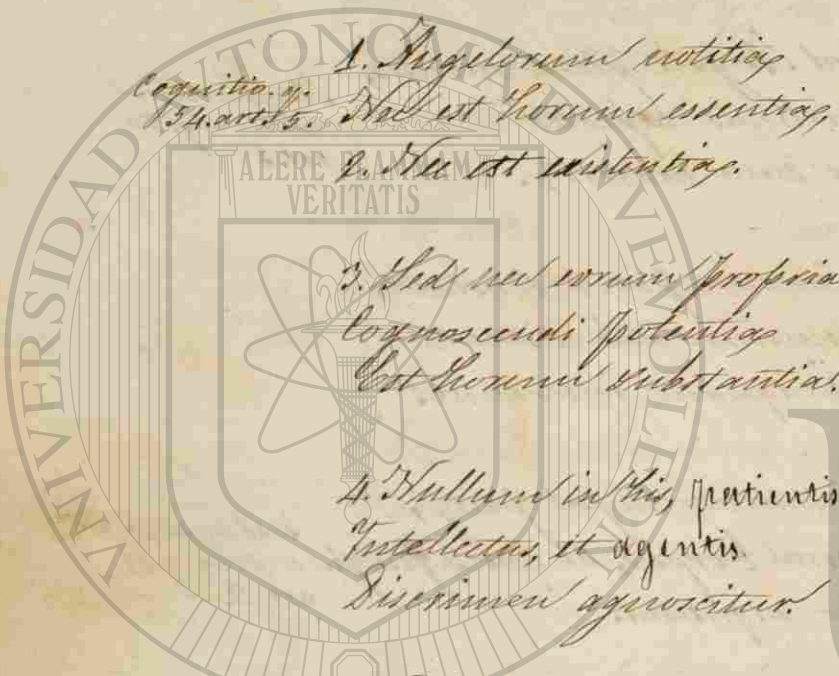 1. Angelorum notitia
Cognitio. q.
54. art. 5.
Nec est horum essentia,
2. Nec est existentia.
3. Sed nec eorum propria
Cognoscendi potentia
Est horum substantia.
4. Nullum in his, patientis
Intellectus, et agentis
Discrimen agnoscitur.
UNIVERSIDAD AUTONOMA DE NUEVO LEON
ALERE FLAMMAM
VERITATIS